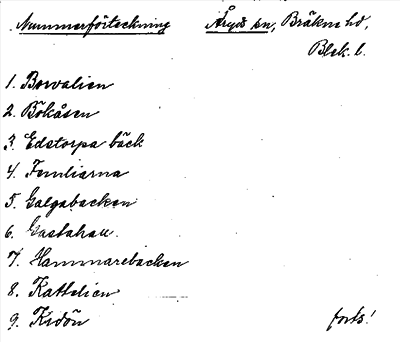 Nummerförteckning Åryds sn, Bräkne hd,
Blek. l.
1. Borvalien
2. Bökåsen
3. Edstorpa bäck
4. Femliarna
5. Galgabacken
6. Gastahau
7. Hammarebacken
8. Kattelien
9. Kidön forts!